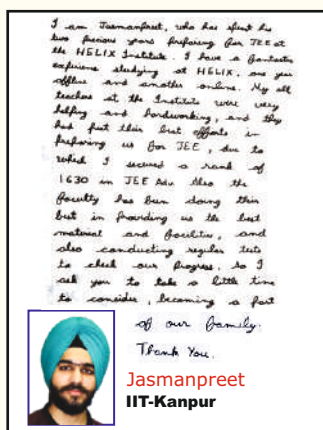 I am Jasmanpreet, who has spent his
two precious years preparing for JEE at
the HELIX Institute. I have a fantastic
experience studying at HELIX, one year
offline and another online. My all
teachers at the Institute were very
helping and hardworking, and they
had put their best efforts in
preparing us for JEE, due to
which I secured a rank of
1630 in JEE Adv. Also the
faculty has been doing their
best in providing us the best
material and facilities, and
also conducting regular tests
to check our progress. So I
ask you to take a little time
to consider, becoming a part
of our family.
Thank You.
Jasmanpreet
IIT-Kanpur